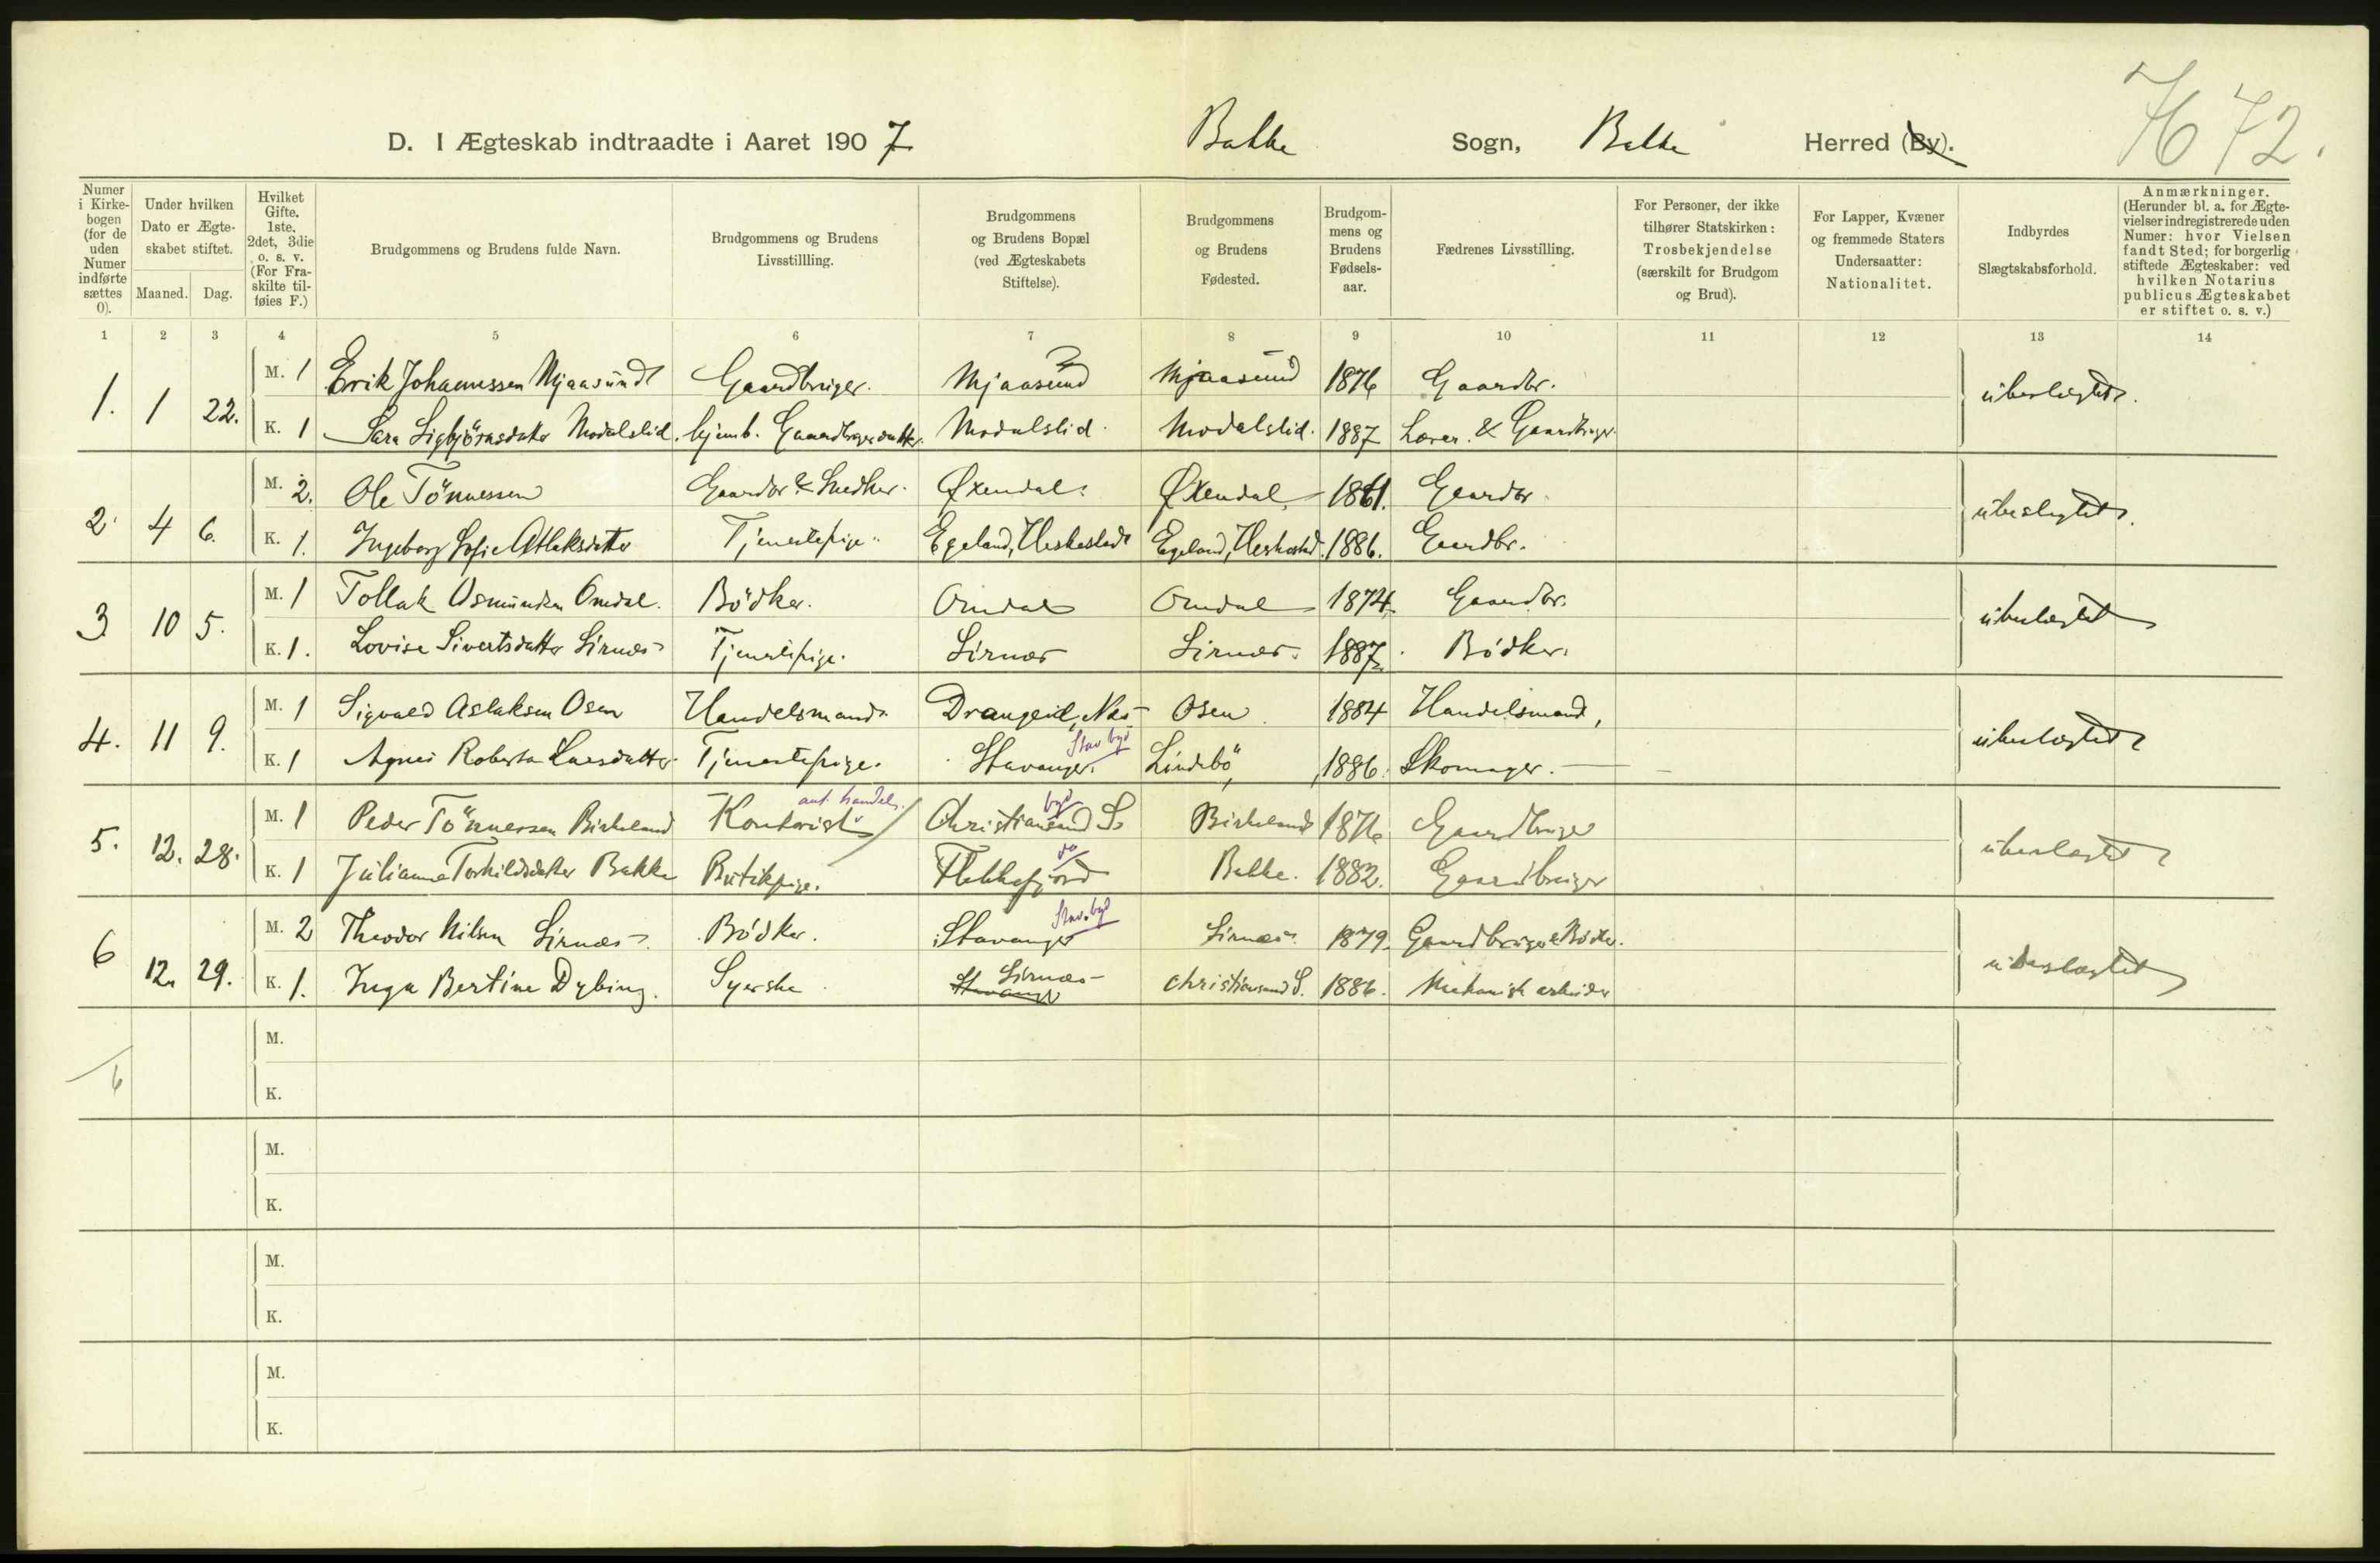 7672.
D. I Ægteskab indtraadte i Aaret 1907 Bakke Sogn, Bakke Herred (By).
Numer i Kirkebogen (for de uden Numer indførte sættes 0).
Under hvilken Dato er Ægteskabet stiftet.
Maaned. Dag.
Hvilket Gifte. 1ste, 2det, 3die o. s. v. (For Fraskilte tilføies F.)
Brudgommens og Brudens fulde Navn.
Brudgommens og Brudens Livsstillling.
Brudgommens og Brudens Bopæl (ved Ægteskabets Stiftelse).
Brudgommens og Brudens Fødested.
Brudgommens og Brudens Fødselsaar.
Fædrenes Livsstilling.
For Personer, der ikke tilhører Statskirken: Trosbekjendelse (særskilt for Brudgom og Brud).
For Lapper, Kvæner og fremmede Staters Undersaatter: Nationalitet.
Indbyrdes Slægtskabsforhold.
Anmærkninger. (Herunder bl. a. for Ægtevielser indregistrerede uden Numer: hvor Vielsen fandt Sted; for borgerlig stiftede Ægteskaber: ved hvilken Notarius publicus Ægteskabet er stiftet o. s. v.)
1 2 3 4 5 6 7 8 9 10 11 12 13 14
1. 1 22. M. 1 Erik Johannessen Mjaasund Gaardbruger. Mjaasund Mjaasund 1876 Gaardbr. ubeslægtet.
K. 1 Sara Sigbjörnsdatter Modalslid. hjemb. Gaardbrugerdatter. Modalslid. Modalslid. 1887 Lærer & Gaardbruger.
2. 4 6. M. 2. Ole Tönnessen Gaardbr & Snedker. Øxendal. Øxendal 1861. Gaardbr. ubeslegtet.
K. 1. Ingeborg Sofie Atlaksdatter Tjenestepige. Egeland, Heskestad Egeland, Heskestad. 1886. Gaardbr.
3 10 5. M. 1 Tollak Osmundsen Omdal. Bödker. Omdal Omdal 1874. Gaardbr. ubeslægtet
K. 1. Lovise Sivertsdatter Sirnæs Tjenestepige. Sirnæs Sirnæs. 1887. Bödker.
4. 11 9. M. 1 Sigvald Aslaksen Osen Handelsmand. Drangeid, Næs Osen 1884 Handelsmand, ubeslægtet
Stav byd
K. 1 Agnes Roberta Larsdatter Tjenestepige. Stavanger. Lindebö, 1886. Skomager.
ant. handels. byd
5. 12. 28. M. 1 Peder Tönnessen Birkeland Kontorist Christiansand S. Birkeland 1876 Gaardbruger ubeslægtet
do
K. 1 Juliane Torkildsdatter Bakke Butikpige. Flekkefjord Bakke. 1882. Gaardbruger
Stav. byd
6 12. 29. M. 2 Theodor Nilsen Sirnæs. Bödker. Stavanger Sirnæs. 1879. Gaardbruger & Bödker. ubeslægtet
K. 1. Inga Bertine Dybing. Syerske Sirnæs Stavanger Christiansand S. 1886. Mekanisk arbeider
M.
6
K.
M.
K.
M.
K.
M.
K.